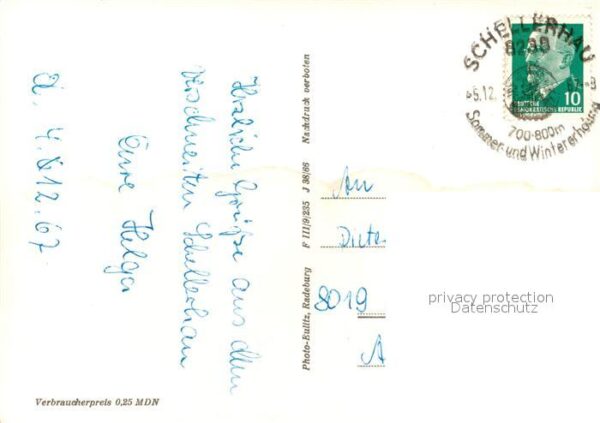 Herzliche Grüße aus dem
verschneiten Schellerhau
Eure Helga
d. 4.12.67
Verbraucherpreis 0,25 MDN
Photo-Eulitz, Radeburg F III/9/235 J 38/66 Nachdruck verboten
SCHELLERHAU
8238
5.12.
700-800m
Sommer- und Wintererholung
DEUTSCHE
DEMOKRATISCHE REPUBLIK
10
An
Dieter
8019
A
privacy protection
Datenschutz